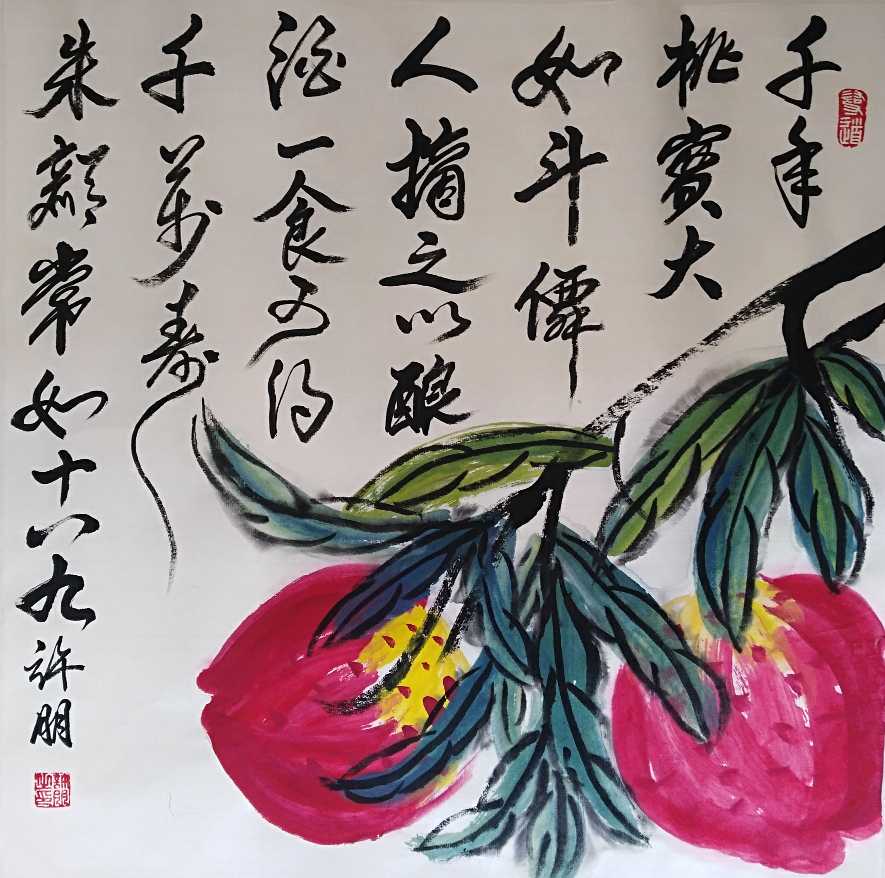 千年
桃實大
如斗僊
人摘之以釀
酒一食可得
千萬壽
朱顏常如十八九
許朋